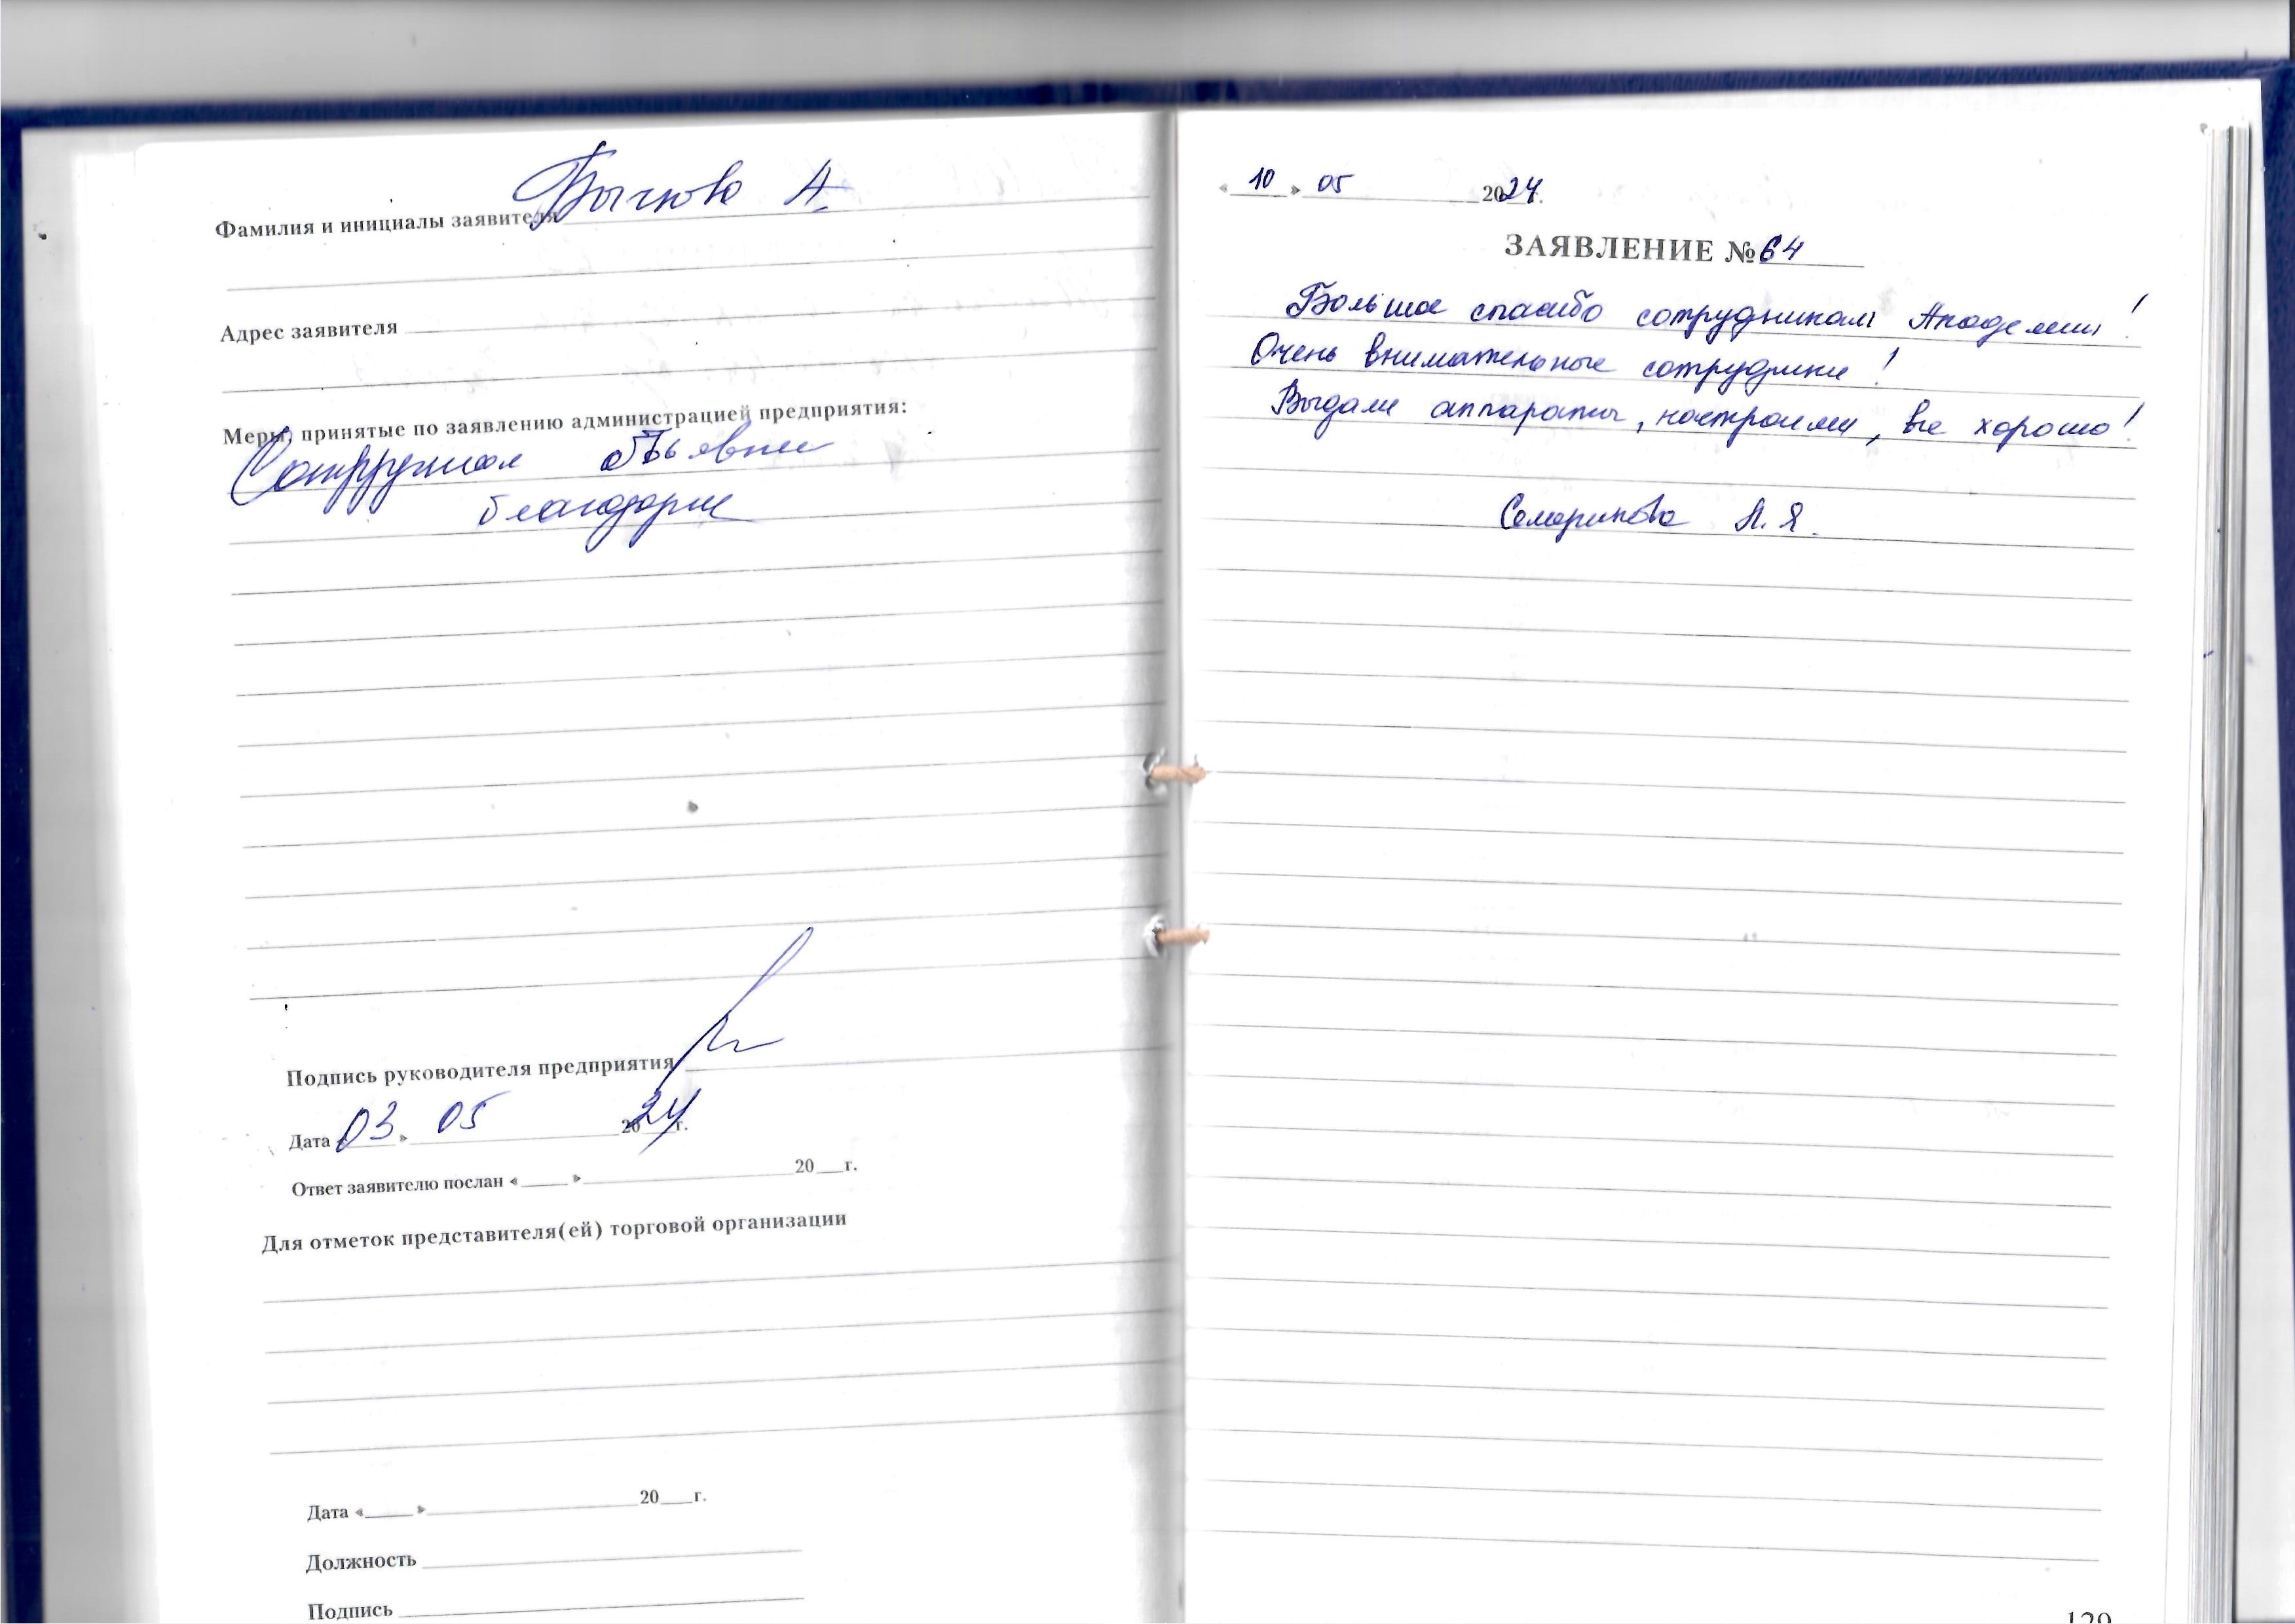 Фамилия и инициалы заявителя Бычкова А.
Адрес заявителя
Меры, принятые по заявлению администрацией предприятия:
Сотрудникам объявлена
благодарн
Подпись руководителя предприятия
Дата «03» 05 2024 г.
Ответ заявителю послан «____» ____ 20__г.
Для отметок представителя(ей) торговой организации
Дата «____» ____ 20__г.
Должность
Подпись
«10» 05 2024г.
ЗАЯВЛЕНИЕ №64
Большое спасибо сотрудникам Академии!
Очень внимательные сотрудники!
Выдали аппараты, настроили, все хорошо!
А. Я.
129